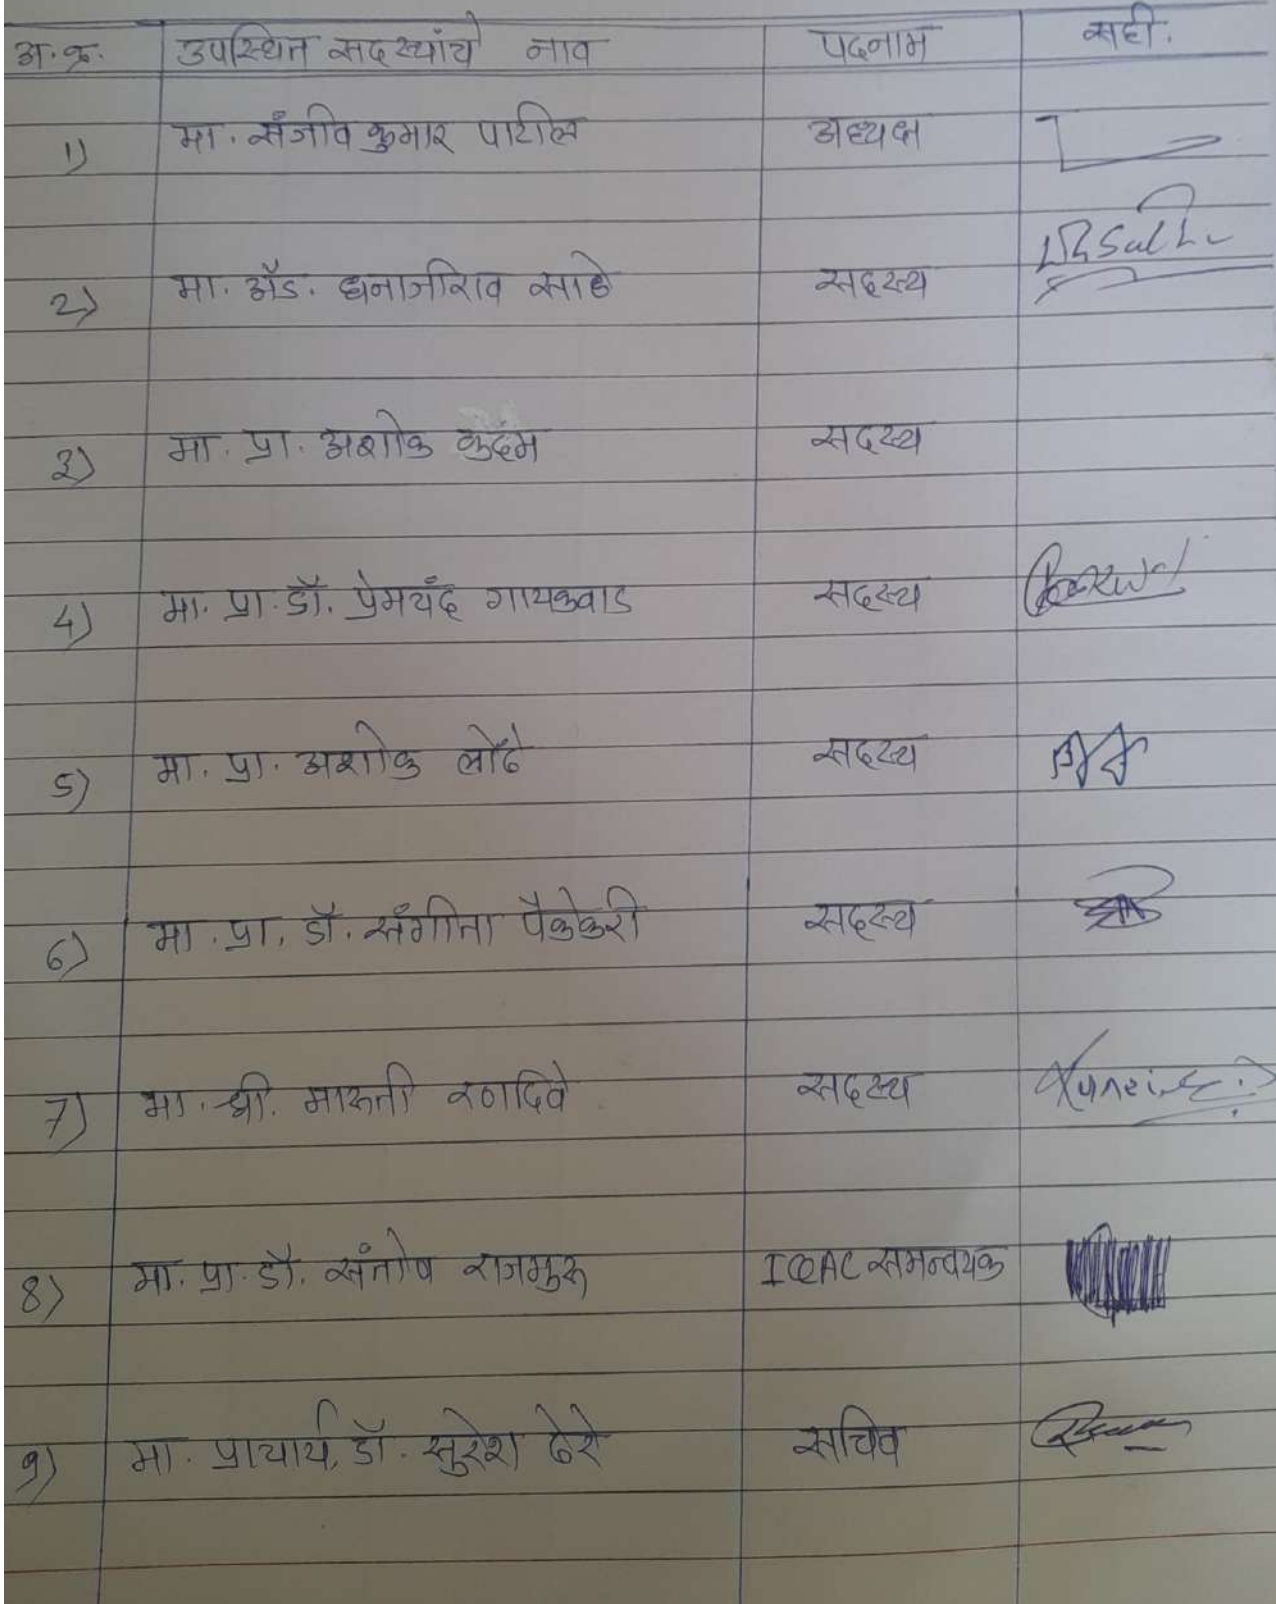 अ.क्र. उपस्थित सदस्यांचे नाव पदनाम सही.
1) मा. संजीव कुमार पाटील अध्यक्ष
2) मा. ॲड. धनाजीराव साठे सदस्य
3) मा. प्रा. अशोक कदम सदस्य
4) मा. प्रा. डॉ. प्रेमचंद गायकवाड सदस्य
5) मा. प्रा. अशोक लोंढे सदस्य
6) मा. प्रा. डॉ. संगीता पैकेकरी सदस्य
7) मा. श्री. मारुती रणदिवे सदस्य
8) मा. प्रा. डॉ. संतोष राजगुरु IQAC समन्वयक
9) मा. प्राचार्य, डॉ. सुरेश ढेरे सचिव